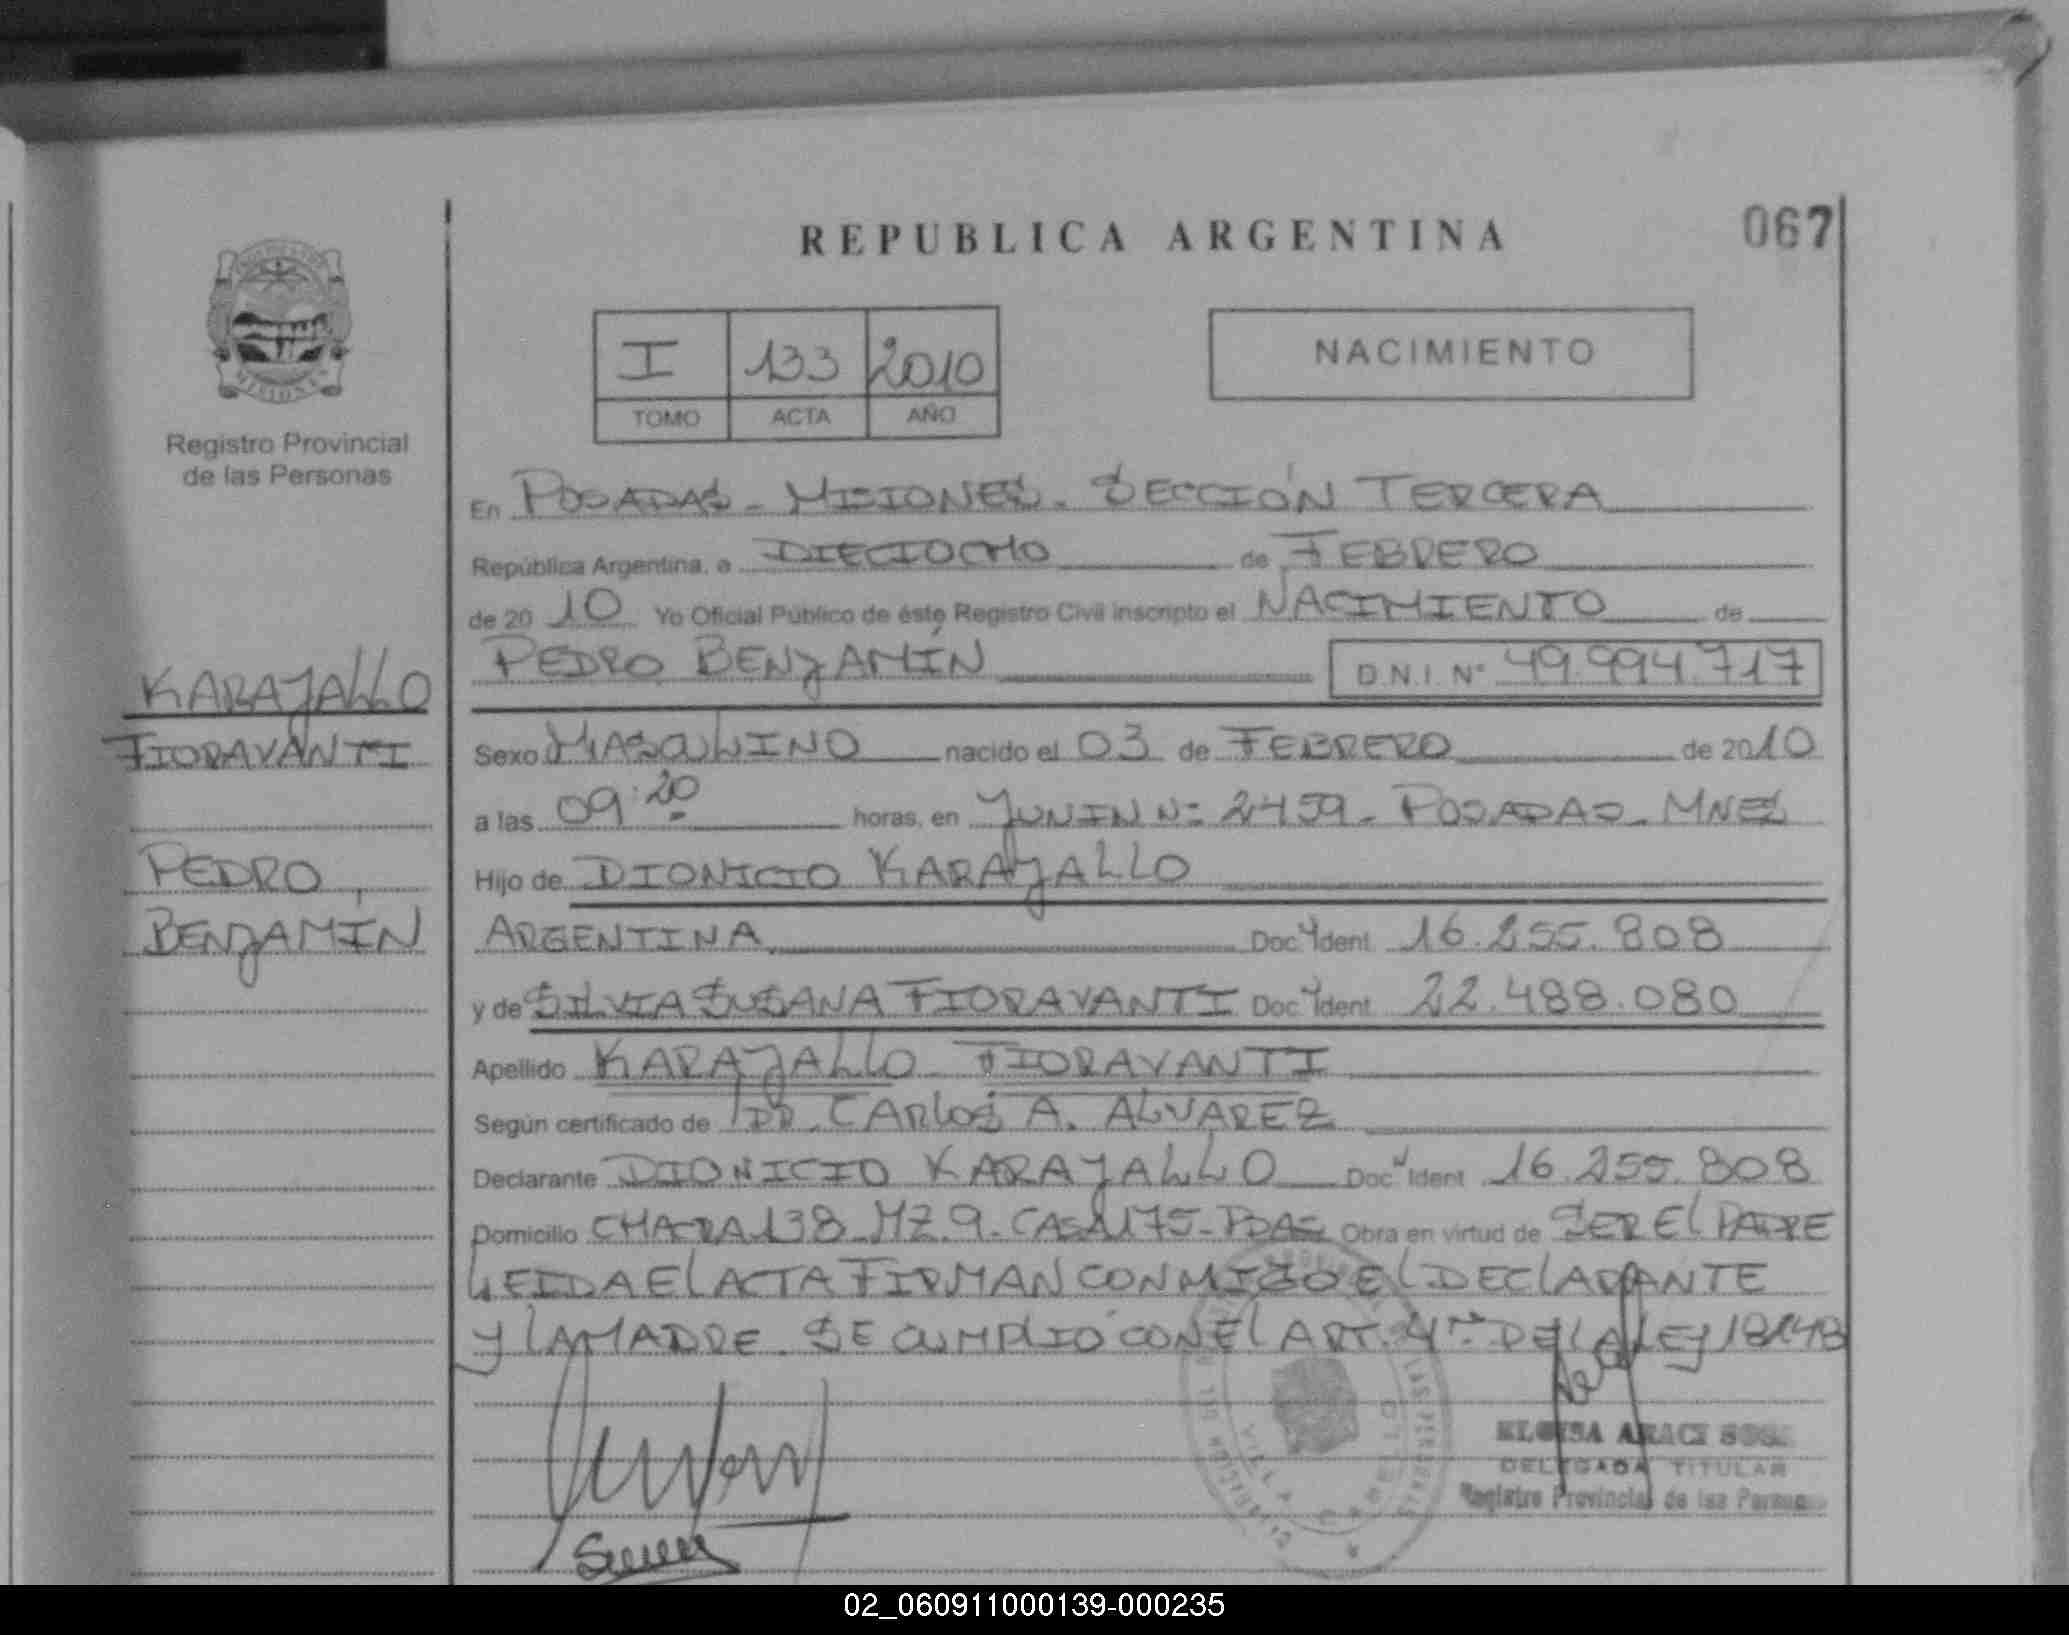 REPUBLICA ARGENTINA
067
I 133 2010
TOMO ACTA AÑO
NACIMIENTO
MISIONES
Registro Provincial
de las Personas
En POSADAS - MISIONES - SECCIÓN TERCERA
República Argentina, a DIECIOCHO de FEBRERO
de 20 10 Yo Oficial Público de éste Registro Civil inscripto el NACIMIENTO de
PEDRO BENJAMÍN D.N.I. Nº 49.994.717
KARAJALLO
FIORAVANTI
PEDRO
BENJAMÍN
Sexo MASCULINO nacido el 03 de FEBRERO de 2010
a las 09:20 horas, en JUNIN Nº 2459 - POSADAS - MNES
Hijo de DIONICIO KARAJALLO
ARGENTINA Doc. Ident. 16.255.808
y de SILVIA SUSANA FIORAVANTI Doc. Ident. 22.488.080
Apellido KARAJALLO FIORAVANTI
Según certificado de DR. CARLOS A. ALVAREZ
Declarante DIONICIO KARAJALLO Doc. Ident. 16.255.808
Domicilio CHACRA 138 - MZ. 9 - CASA 175 - PDAS Obra en virtud de SER EL PADRE
LEIDA EL ACTA FIRMAN CONMIGO EL DECLARANTE
Y LA MADRE. SE CUMPLIO CON EL ART. 4to DE LA LEY 18148
ELOISA ARACI SOSA
DELEGADA TITULAR
Registro Provincial de las Personas
02_060911000139-000235